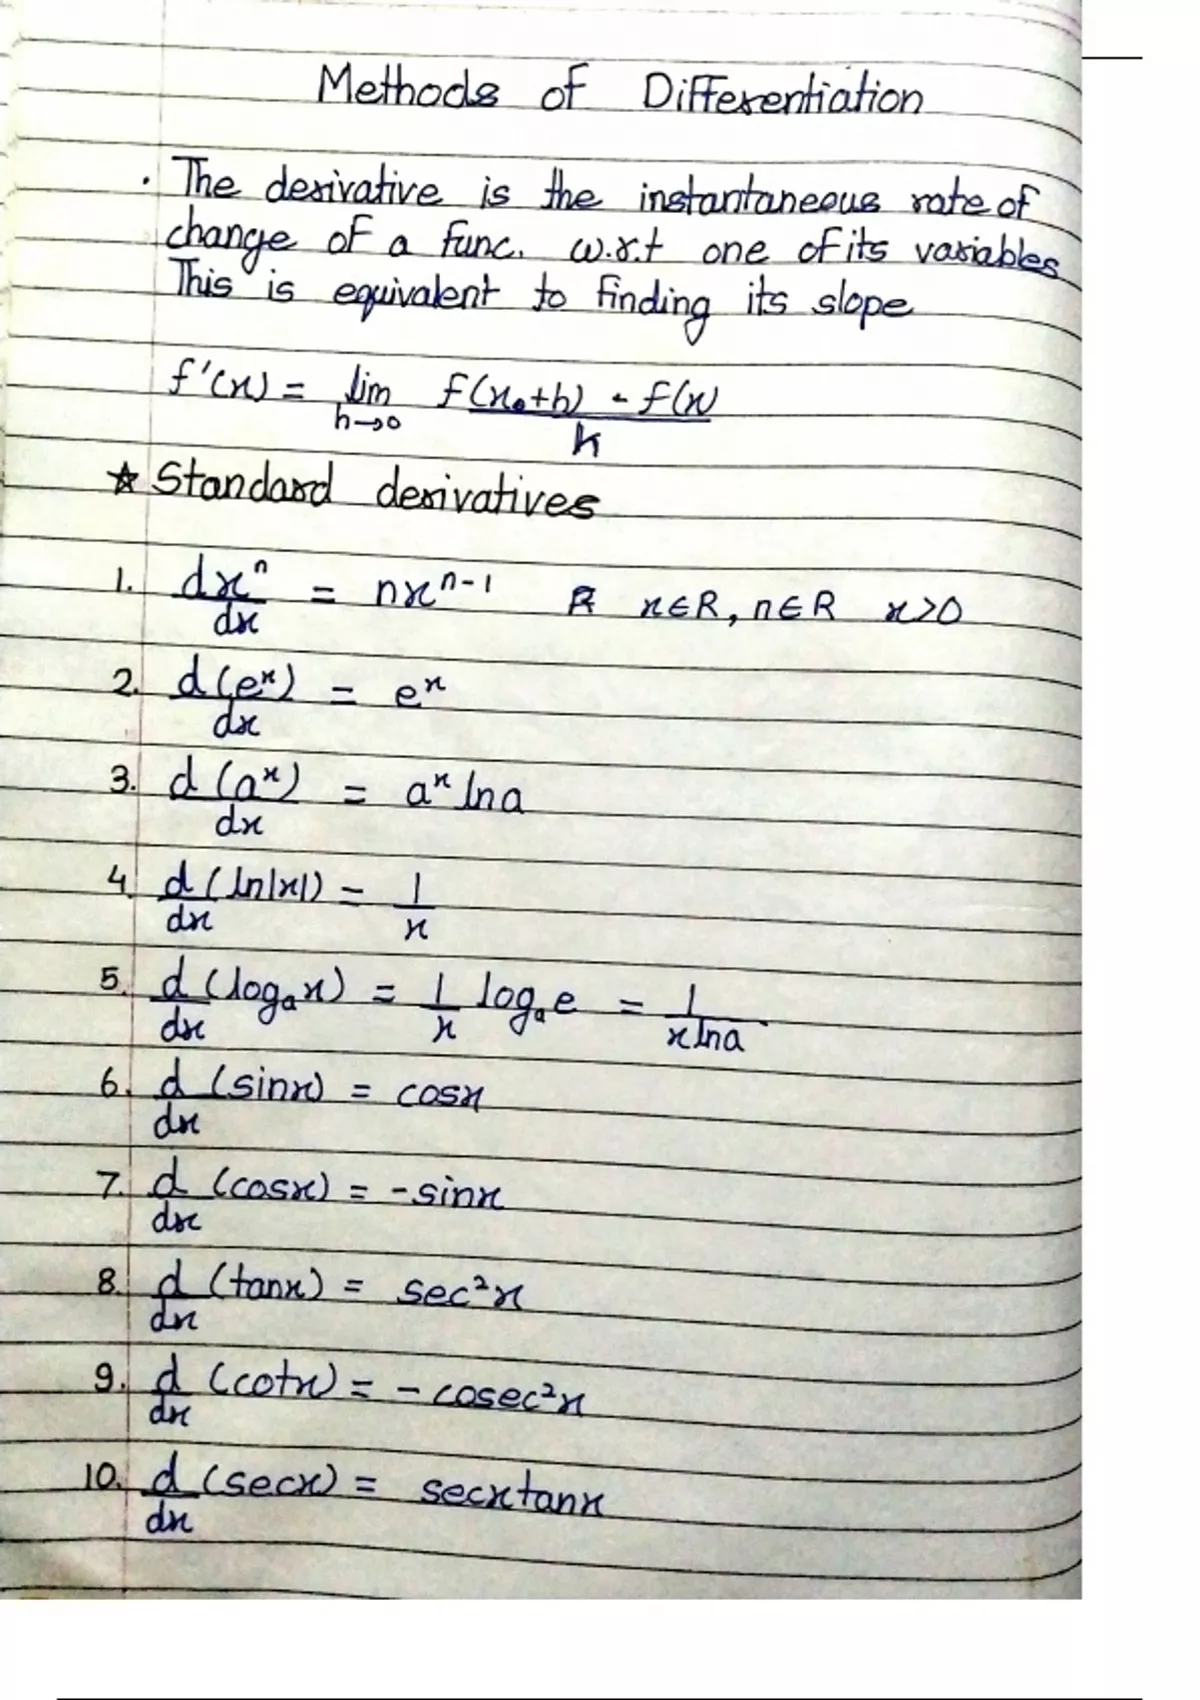 Methods of Differentiation
· The derivative is the instantaneous rate of
change of a func. w.r.t one of its variables
This is equivalent to finding its slope
f'(x) = lim h→0 f(x+h) - f(x) / h
☆ Standard derivatives
1. dxⁿ/dx = nxⁿ⁻¹ x∈R, n∈R x>0
2. d(eˣ)/dx = eˣ
3. d(aˣ)/dx = aˣ lna
4. d/dx (ln|x|) = 1/x
5. d/dx (logₐx) = 1/x logₐe = 1/xlna
6. d/dx (sinx) = cosx
7. d/dx (cosx) = -sinx
8. d/dx (tanx) = sec²x
9. d/dx (cotx) = - cosec²x
10. d/dx (secx) = secxtanx